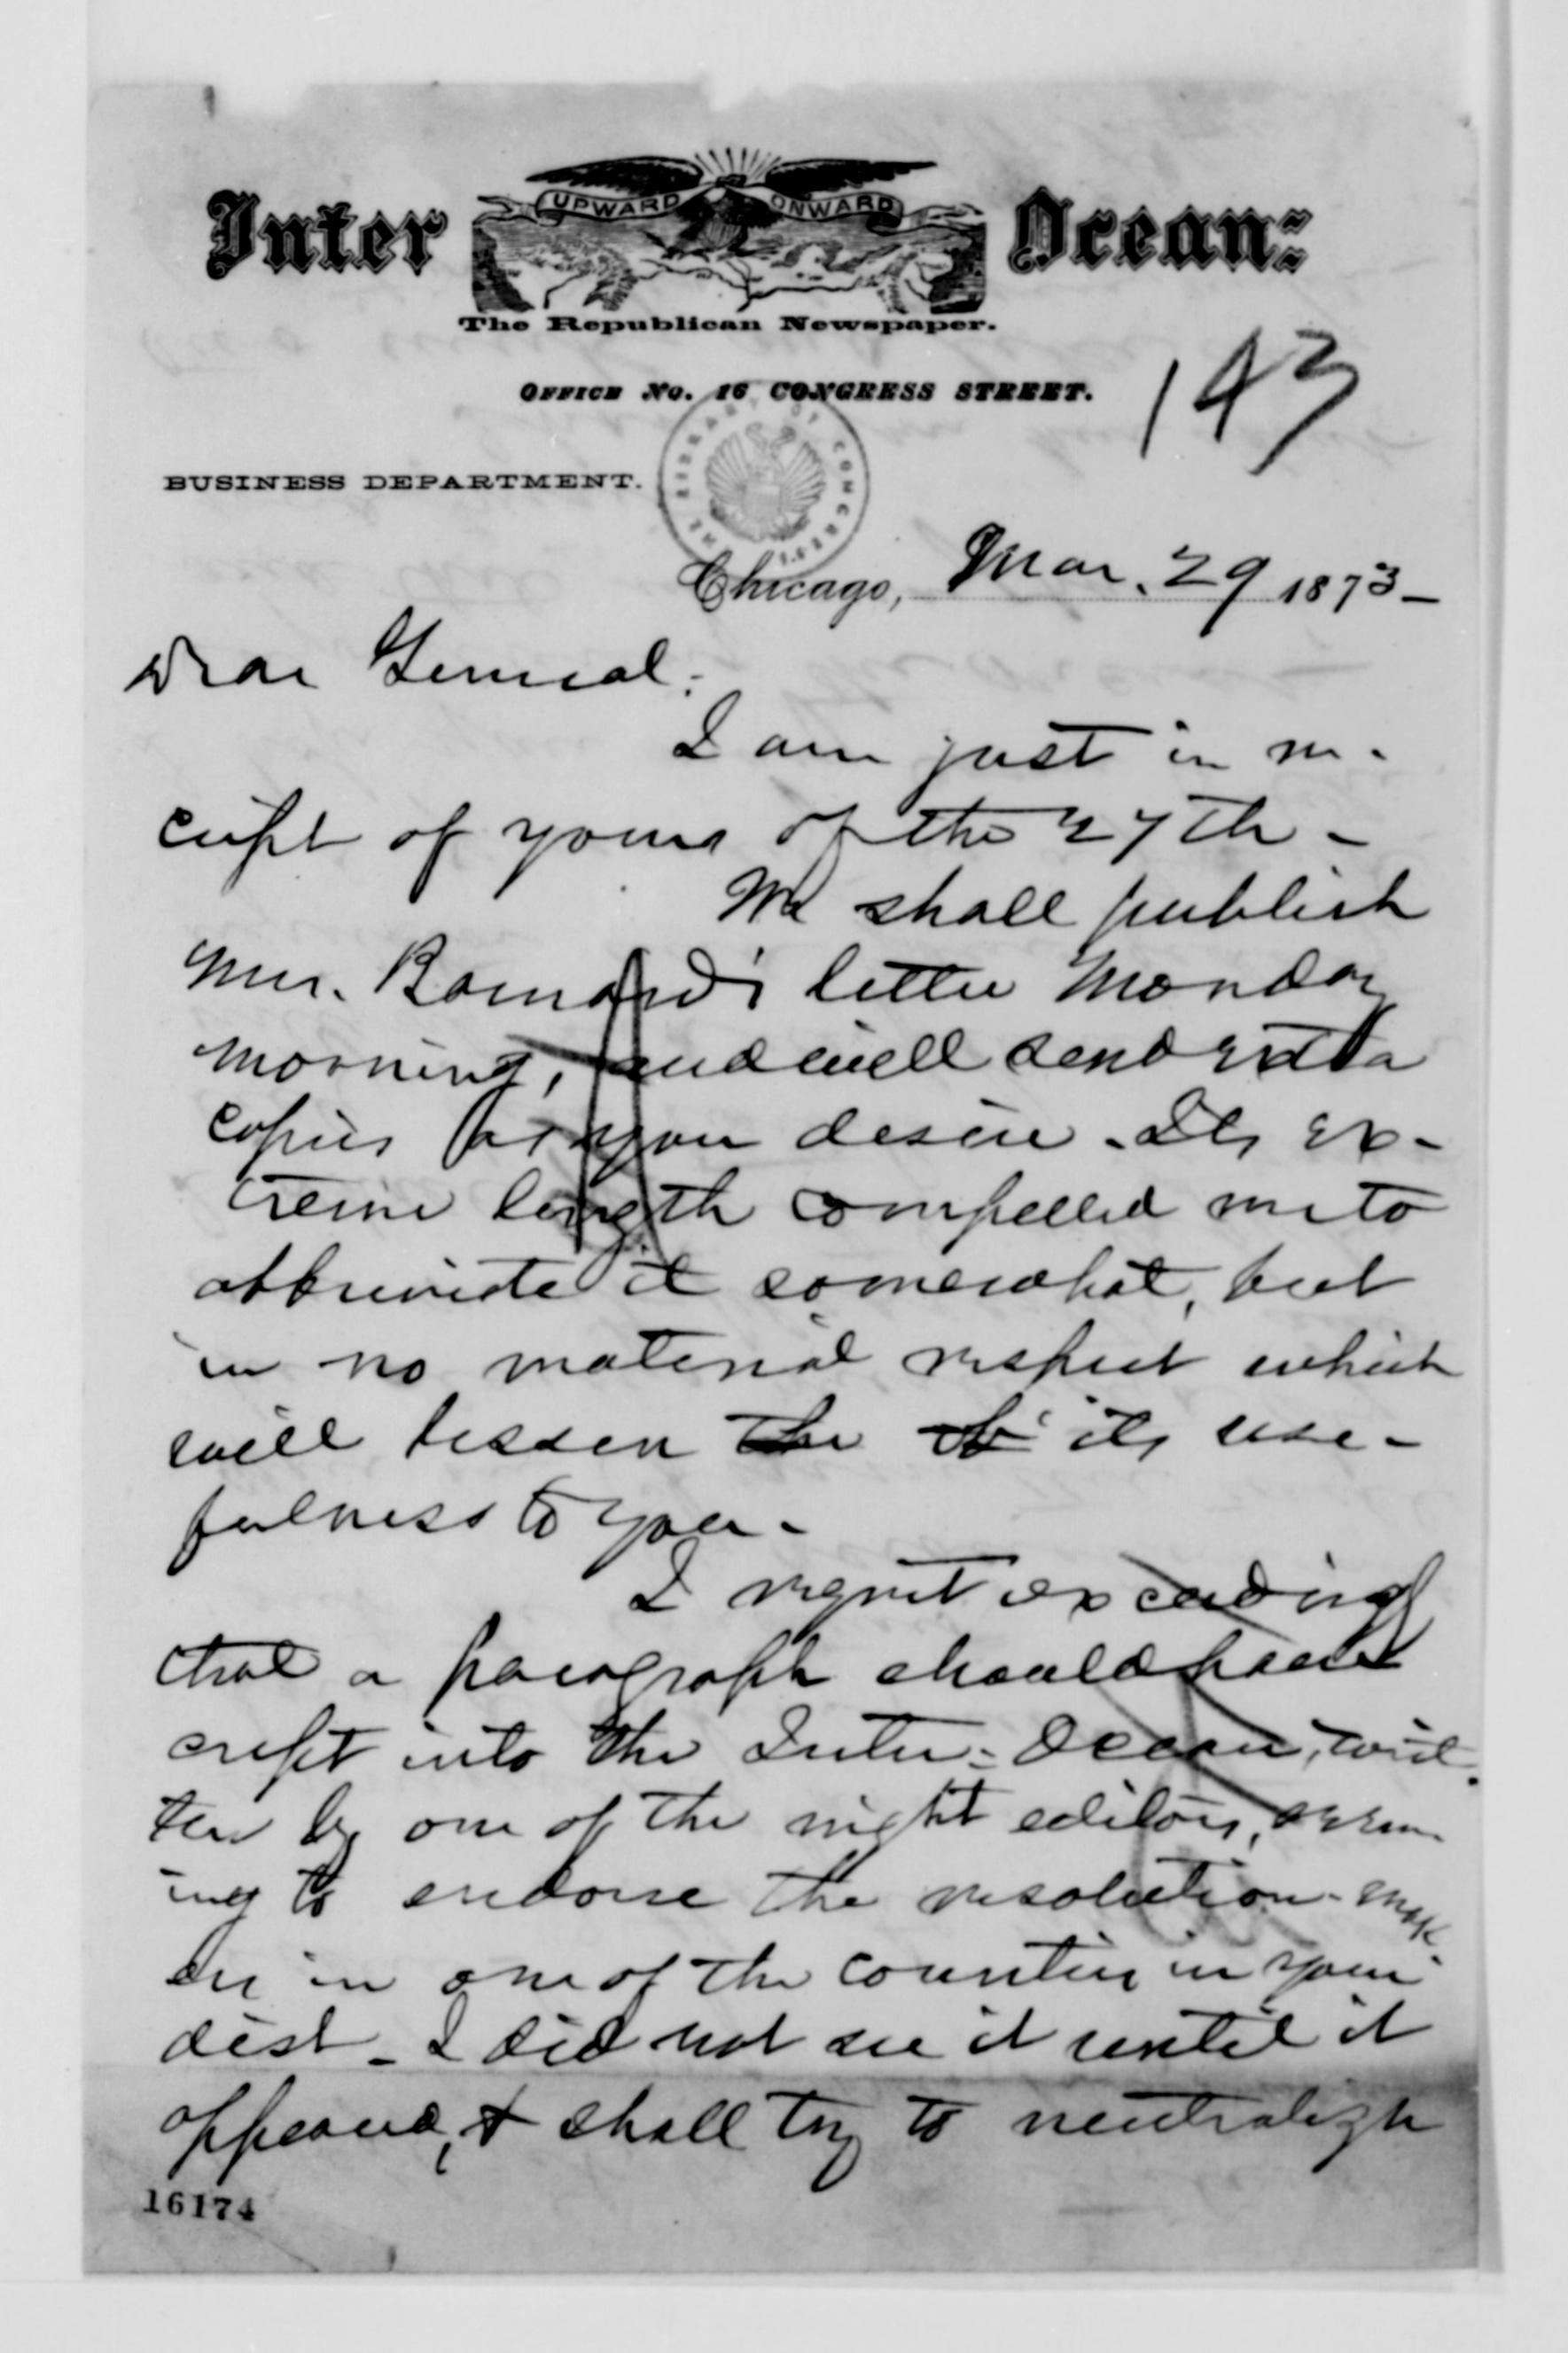 Inter Ocean:
UPWARD ONWARD
The Republican Newspaper.
OFFICE No. 16 CONGRESS STREET.
143
BUSINESS DEPARTMENT.
THE LIBRARY OF CONGRESS
Chicago, Mar. 29 1873-
Dear General:
I am just in re-
ceipt of yours of the 27th -
We shall publish
Mr. Barnard's letter Monday
morning, and will send extra
copies as you desire. Its ex-
treme length compelled me to
abbreviate it somewhat, but
in no material respect which
will lessen the its use-
fulness to you -
I regret exceedingly
that a paragraph should have
crept into the Inter-Ocean, writ-
ten by one of the night editors, seem-
ing to endorse the resolution-mak-
ers in one of the counties in your
dist - I did not see it until it
appeared, & shall try to neutralize
16174